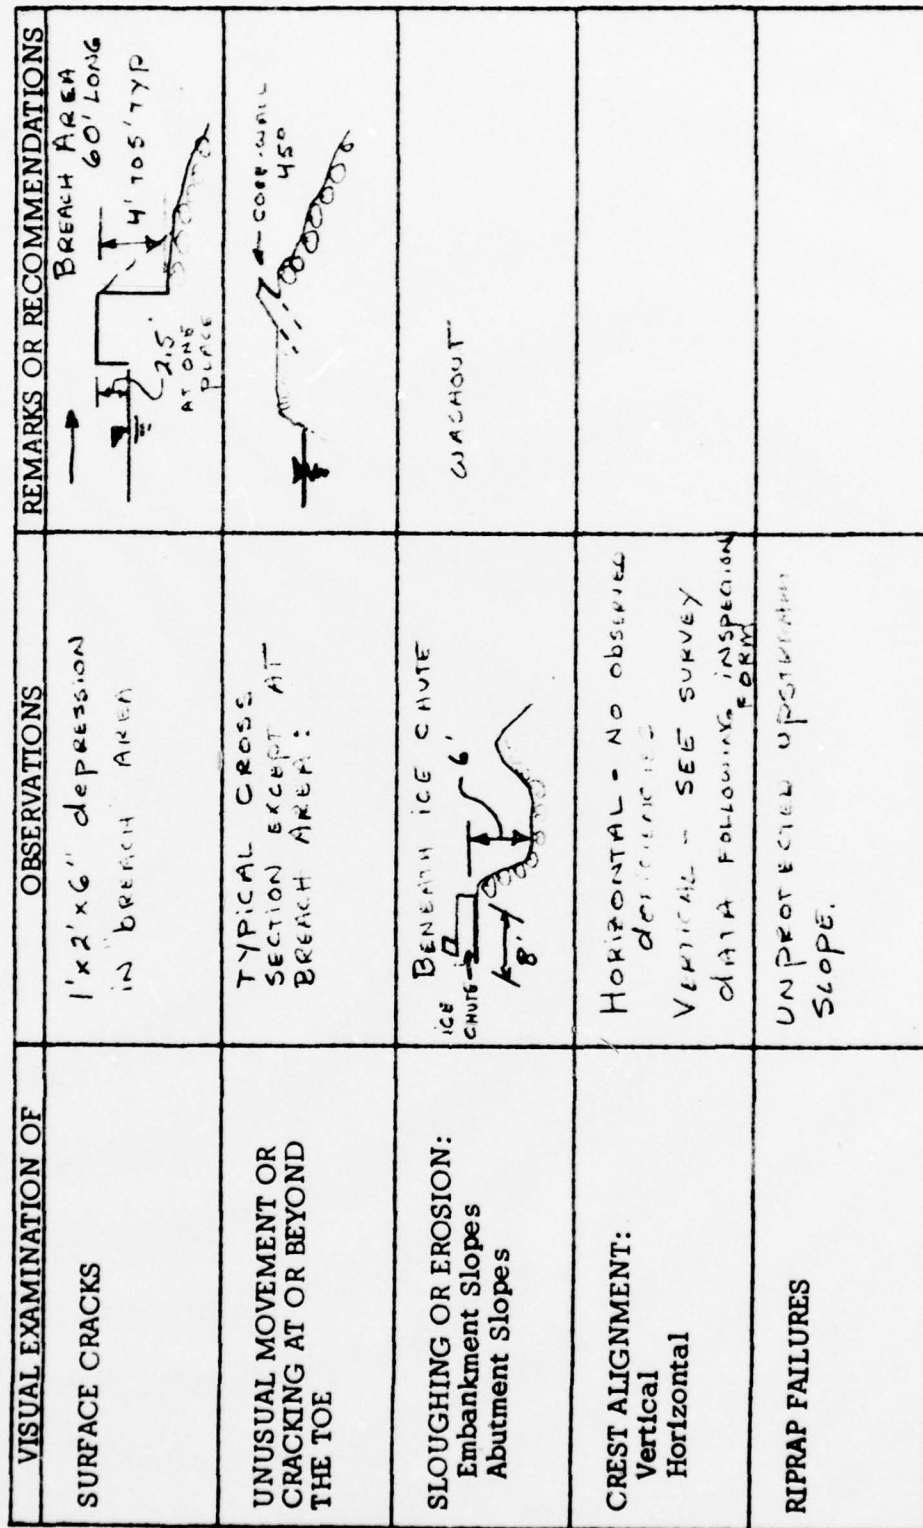 VISUAL EXAMINATION OF
OBSERVATIONS
REMARKS OR RECOMMENDATIONS
SURFACE CRACKS
1' x 2' x 6" depression
in BREACH AREA
BREACH AREA
60' LONG
4' TO 5' TYP
2.5'
AT ONE
PLACE
UNUSUAL MOVEMENT OR
CRACKING AT OR BEYOND
THE TOE
TYPICAL CROSS
SECTION EXCEPT AT
BREACH AREA:
CORE-WALL
45°
SLOUGHING OR EROSION:
Embankment Slopes
Abutment Slopes
BENEATH ICE CHUTE
ICE
CHUTE
6'
8'
WASHOUT
CREST ALIGNMENT:
Vertical
Horizontal
HORIZONTAL - NO observed
deficiencies
VERTICAL - SEE SURVEY
dATA FOLLOWING INSPECTION
FORM
RIPRAP FAILURES
UNPROTECTED UPSTREAM
SLOPE.